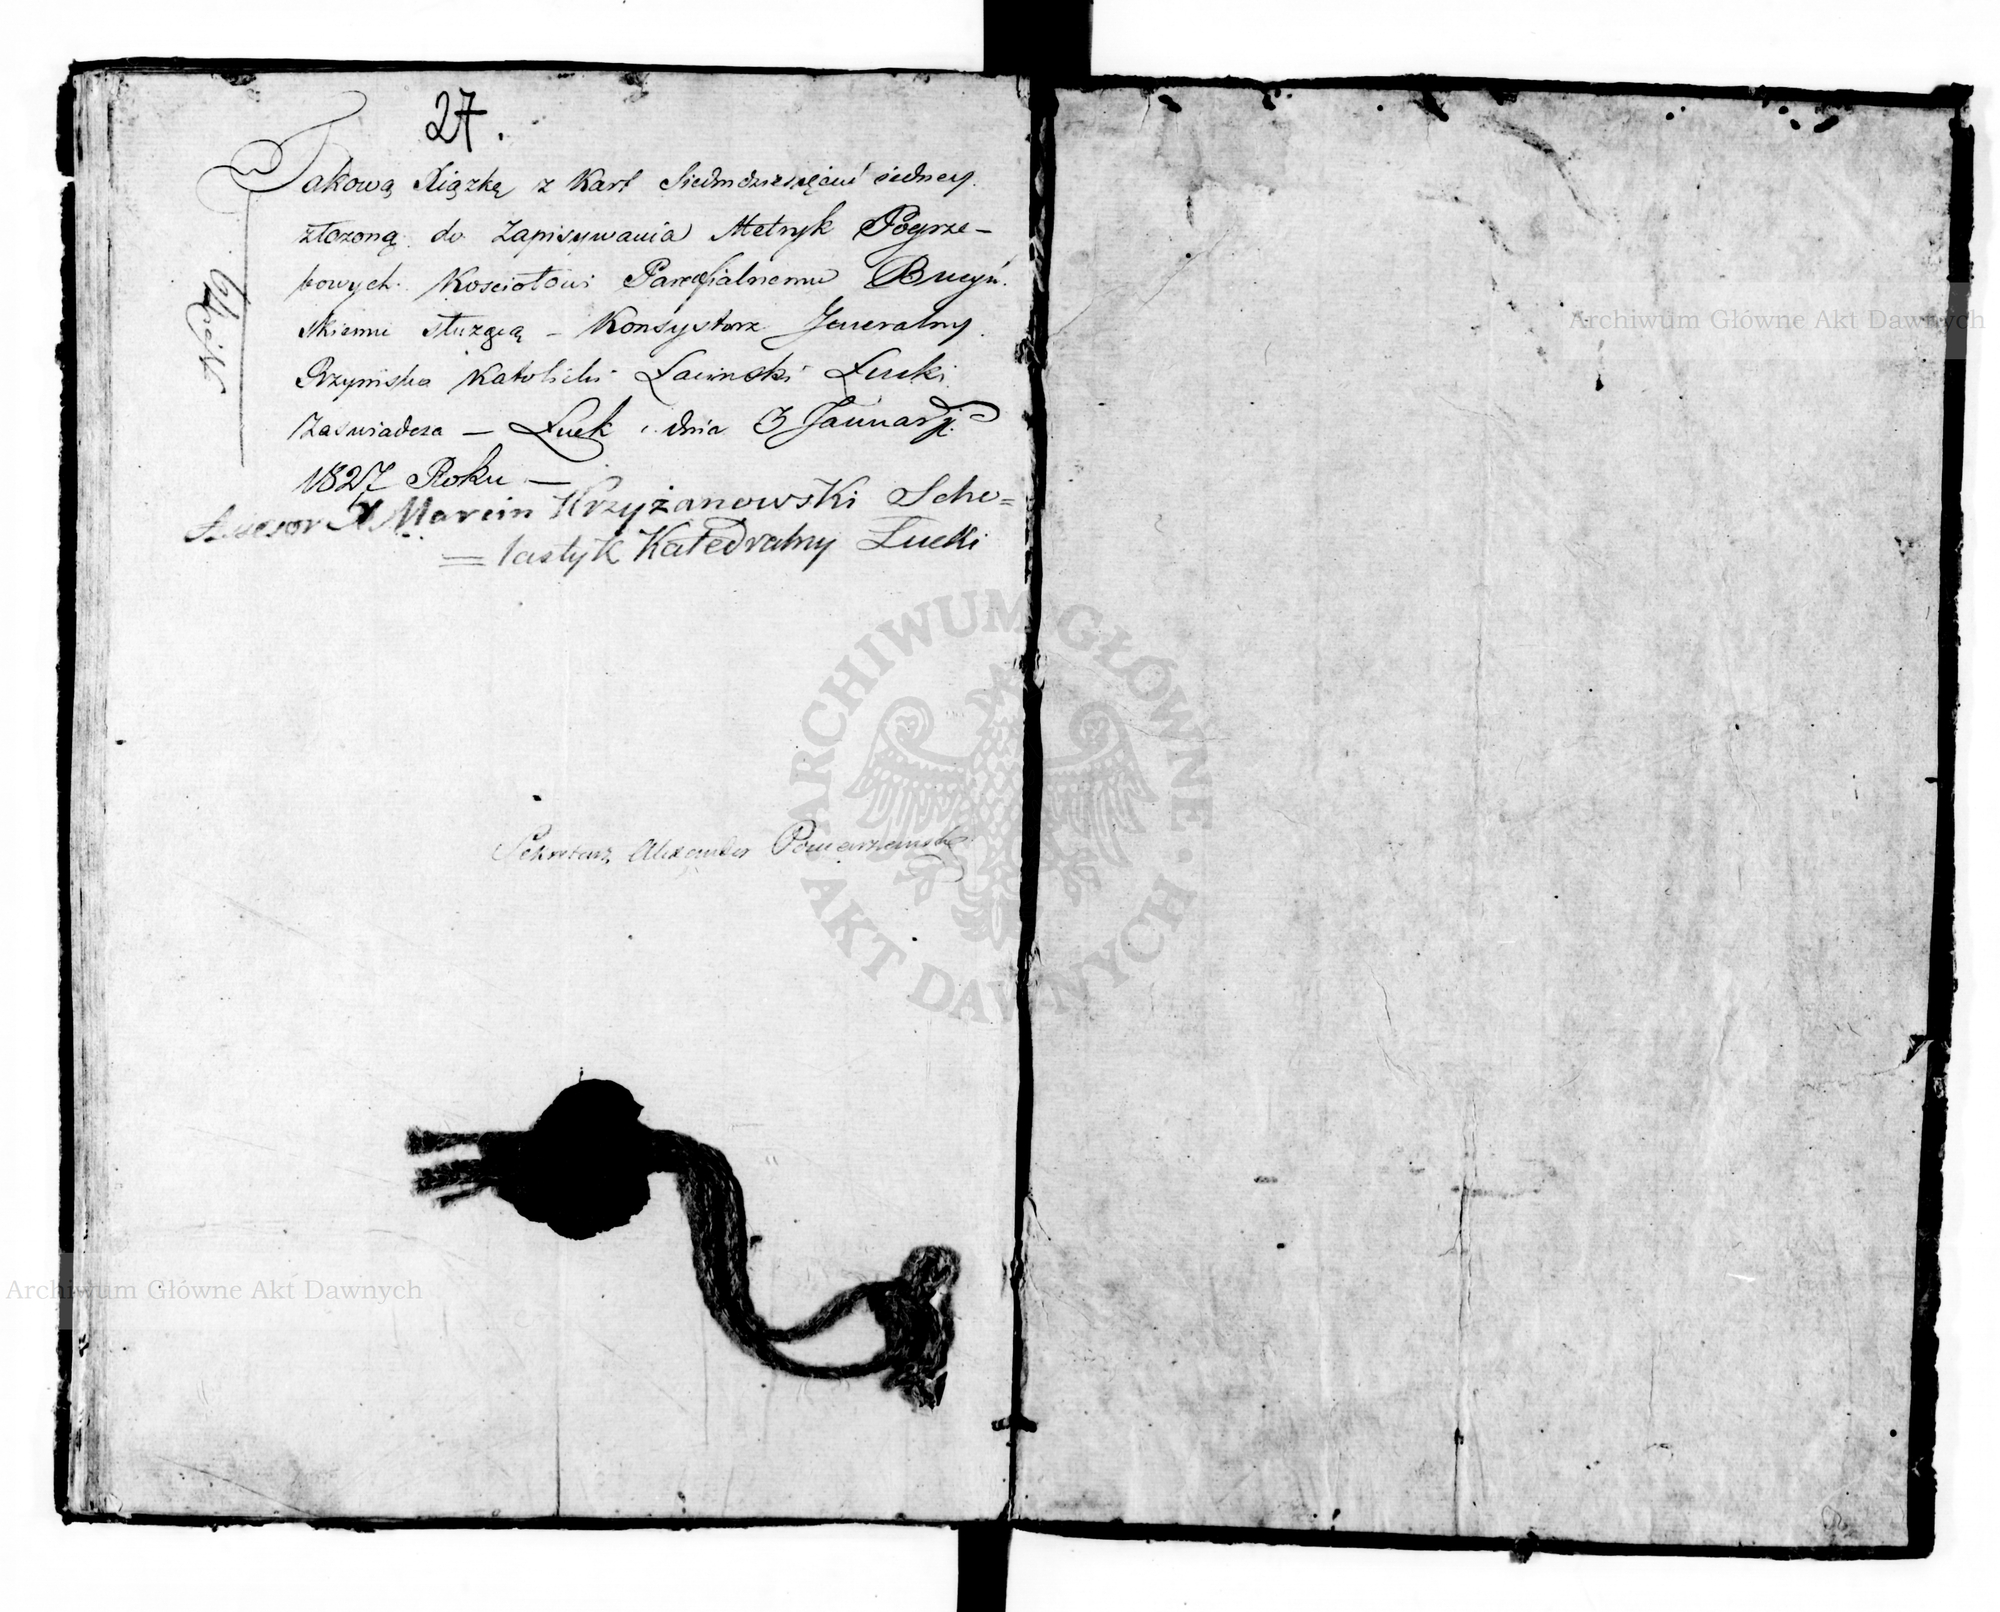 27.
Takową Xiązkę z Kart Siedmdziesięciu iedney
złożoną do Zapisywania Metryk Pogrze-
bowych Kosciołowi Parafialnemu Bucyń-
skiemu służącą – Konsystorz Jeneralny
Rzymsko Katolicki Łaciński Łucki
Zaswiadcza – Łuck dnia 3 January
1827 Roku –
Assesor X Marcin Krzyżanowski Scho=
=lastyk Katedralny Łucki
Sekretarz Alexander
Archiwum Główne Akt Dawnych
ARCHIWUM GŁÓWNE AKT DAWNYCH
Archiwum Główne Akt Dawnych